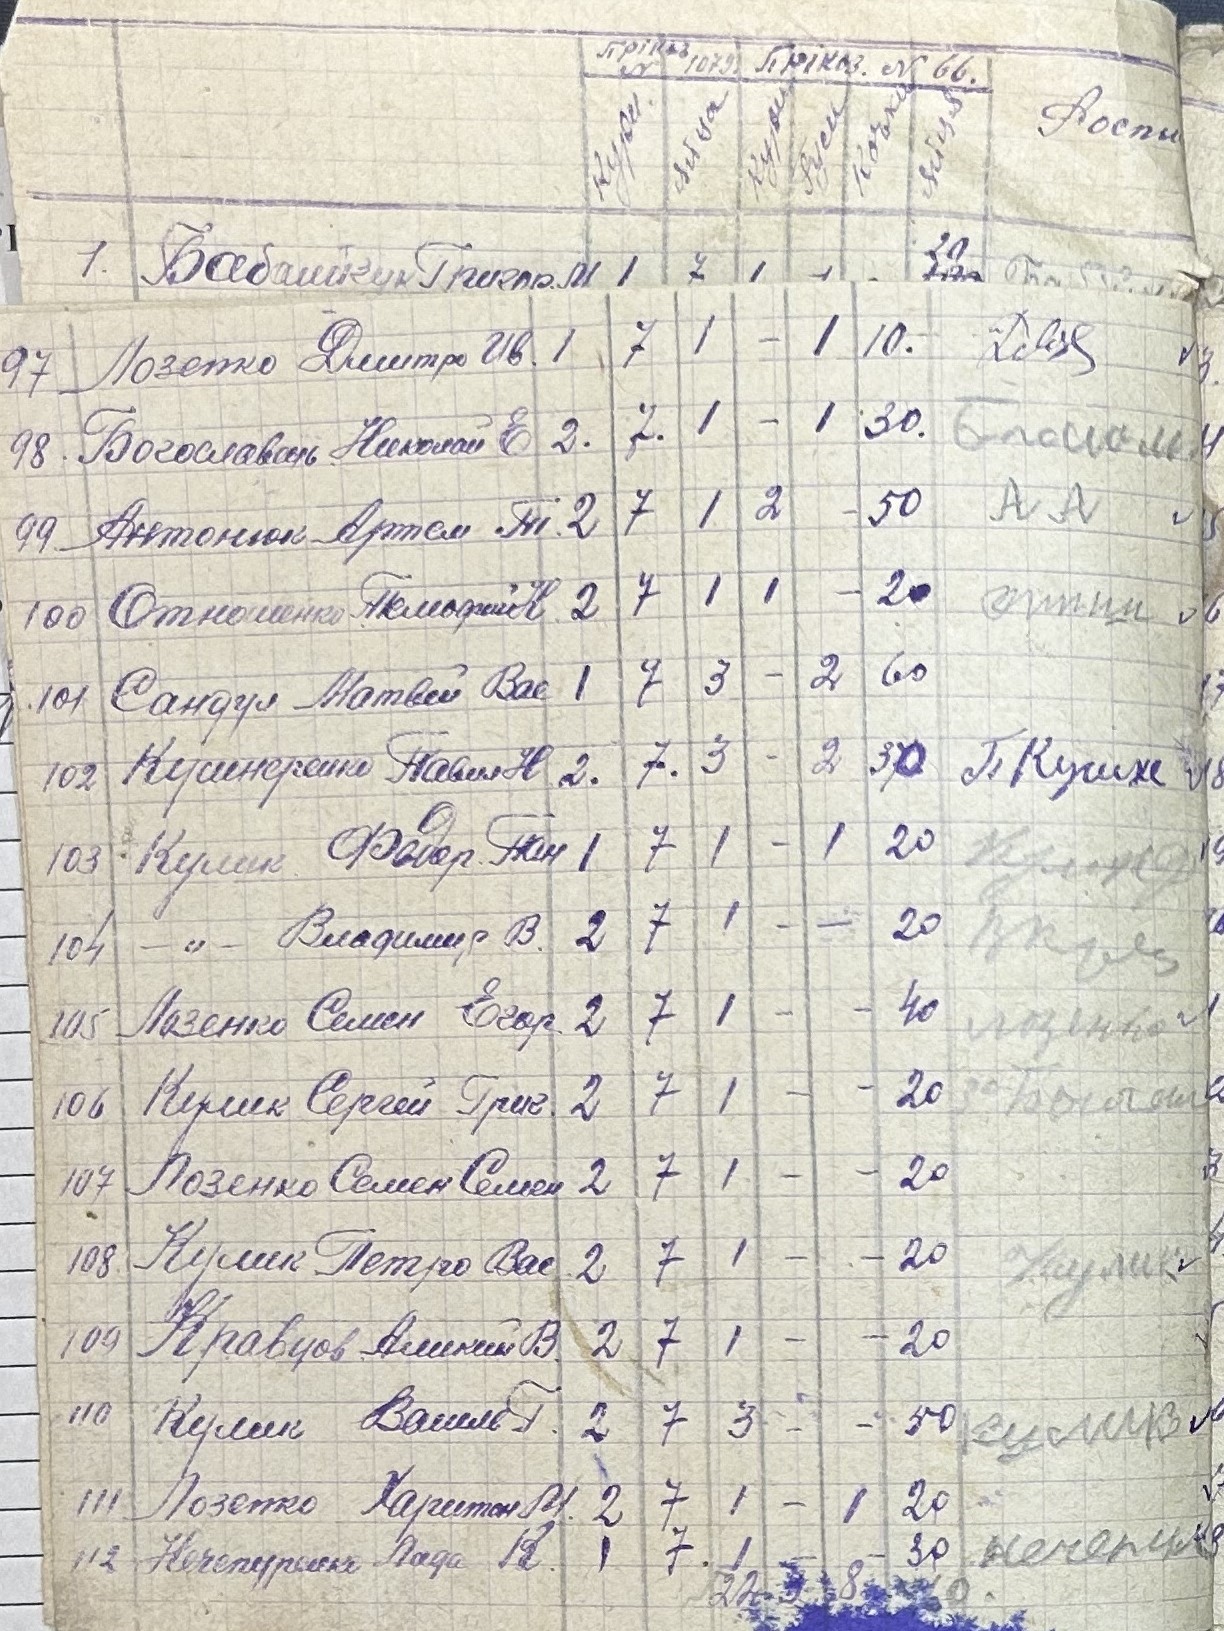 Пріказ N 1079. Пріказ. N 66.
Кури. Яйца Кури Гуси Качки Яйця Роспи
1. Бабашкун Григор. М 1 7 1 - - 20
97 Лозенко Дмитро Ив. 1 7 1 - 1 10.
98. Богославець Николай Е 2. 7. 1 - 1 30.
99. Антонюк Артем Ти. 2 7 1 2 - 50 А А
100 Отношенко Тимофей Н. 2 7 1 1 - 20
101 Сандул Матвей Вас 1 7 3 - 2 60
102 Кушнеренко Павел Н 2. 7. 3 - 2 30 П Кушне
103 Кулик Федор Пан 1 7 1 - 1 20
104 -"- Владимир В. 2 7 1 - - 20
105 Лозенко Семен Егор. 2 7 1 - - 40 лозенко
106 Кулик Сергей Григ. 2 7 1 - - 20
107 Лозенко Семен Семен 2 7 1 - - 20
108 Кулик Петро Вас. 2 7 1 - - 20 Кулик
109 Кравцов В. 2 7 1 - - 20
110 Кулик Василь Г. 2 7 3 - - 50 кулик
111 Лозенко Харитон М. 2 7 1 - 1 20
112 Нечепуренко Лада К. 1 7. 1 - - 30 нечепу
22. 3 8